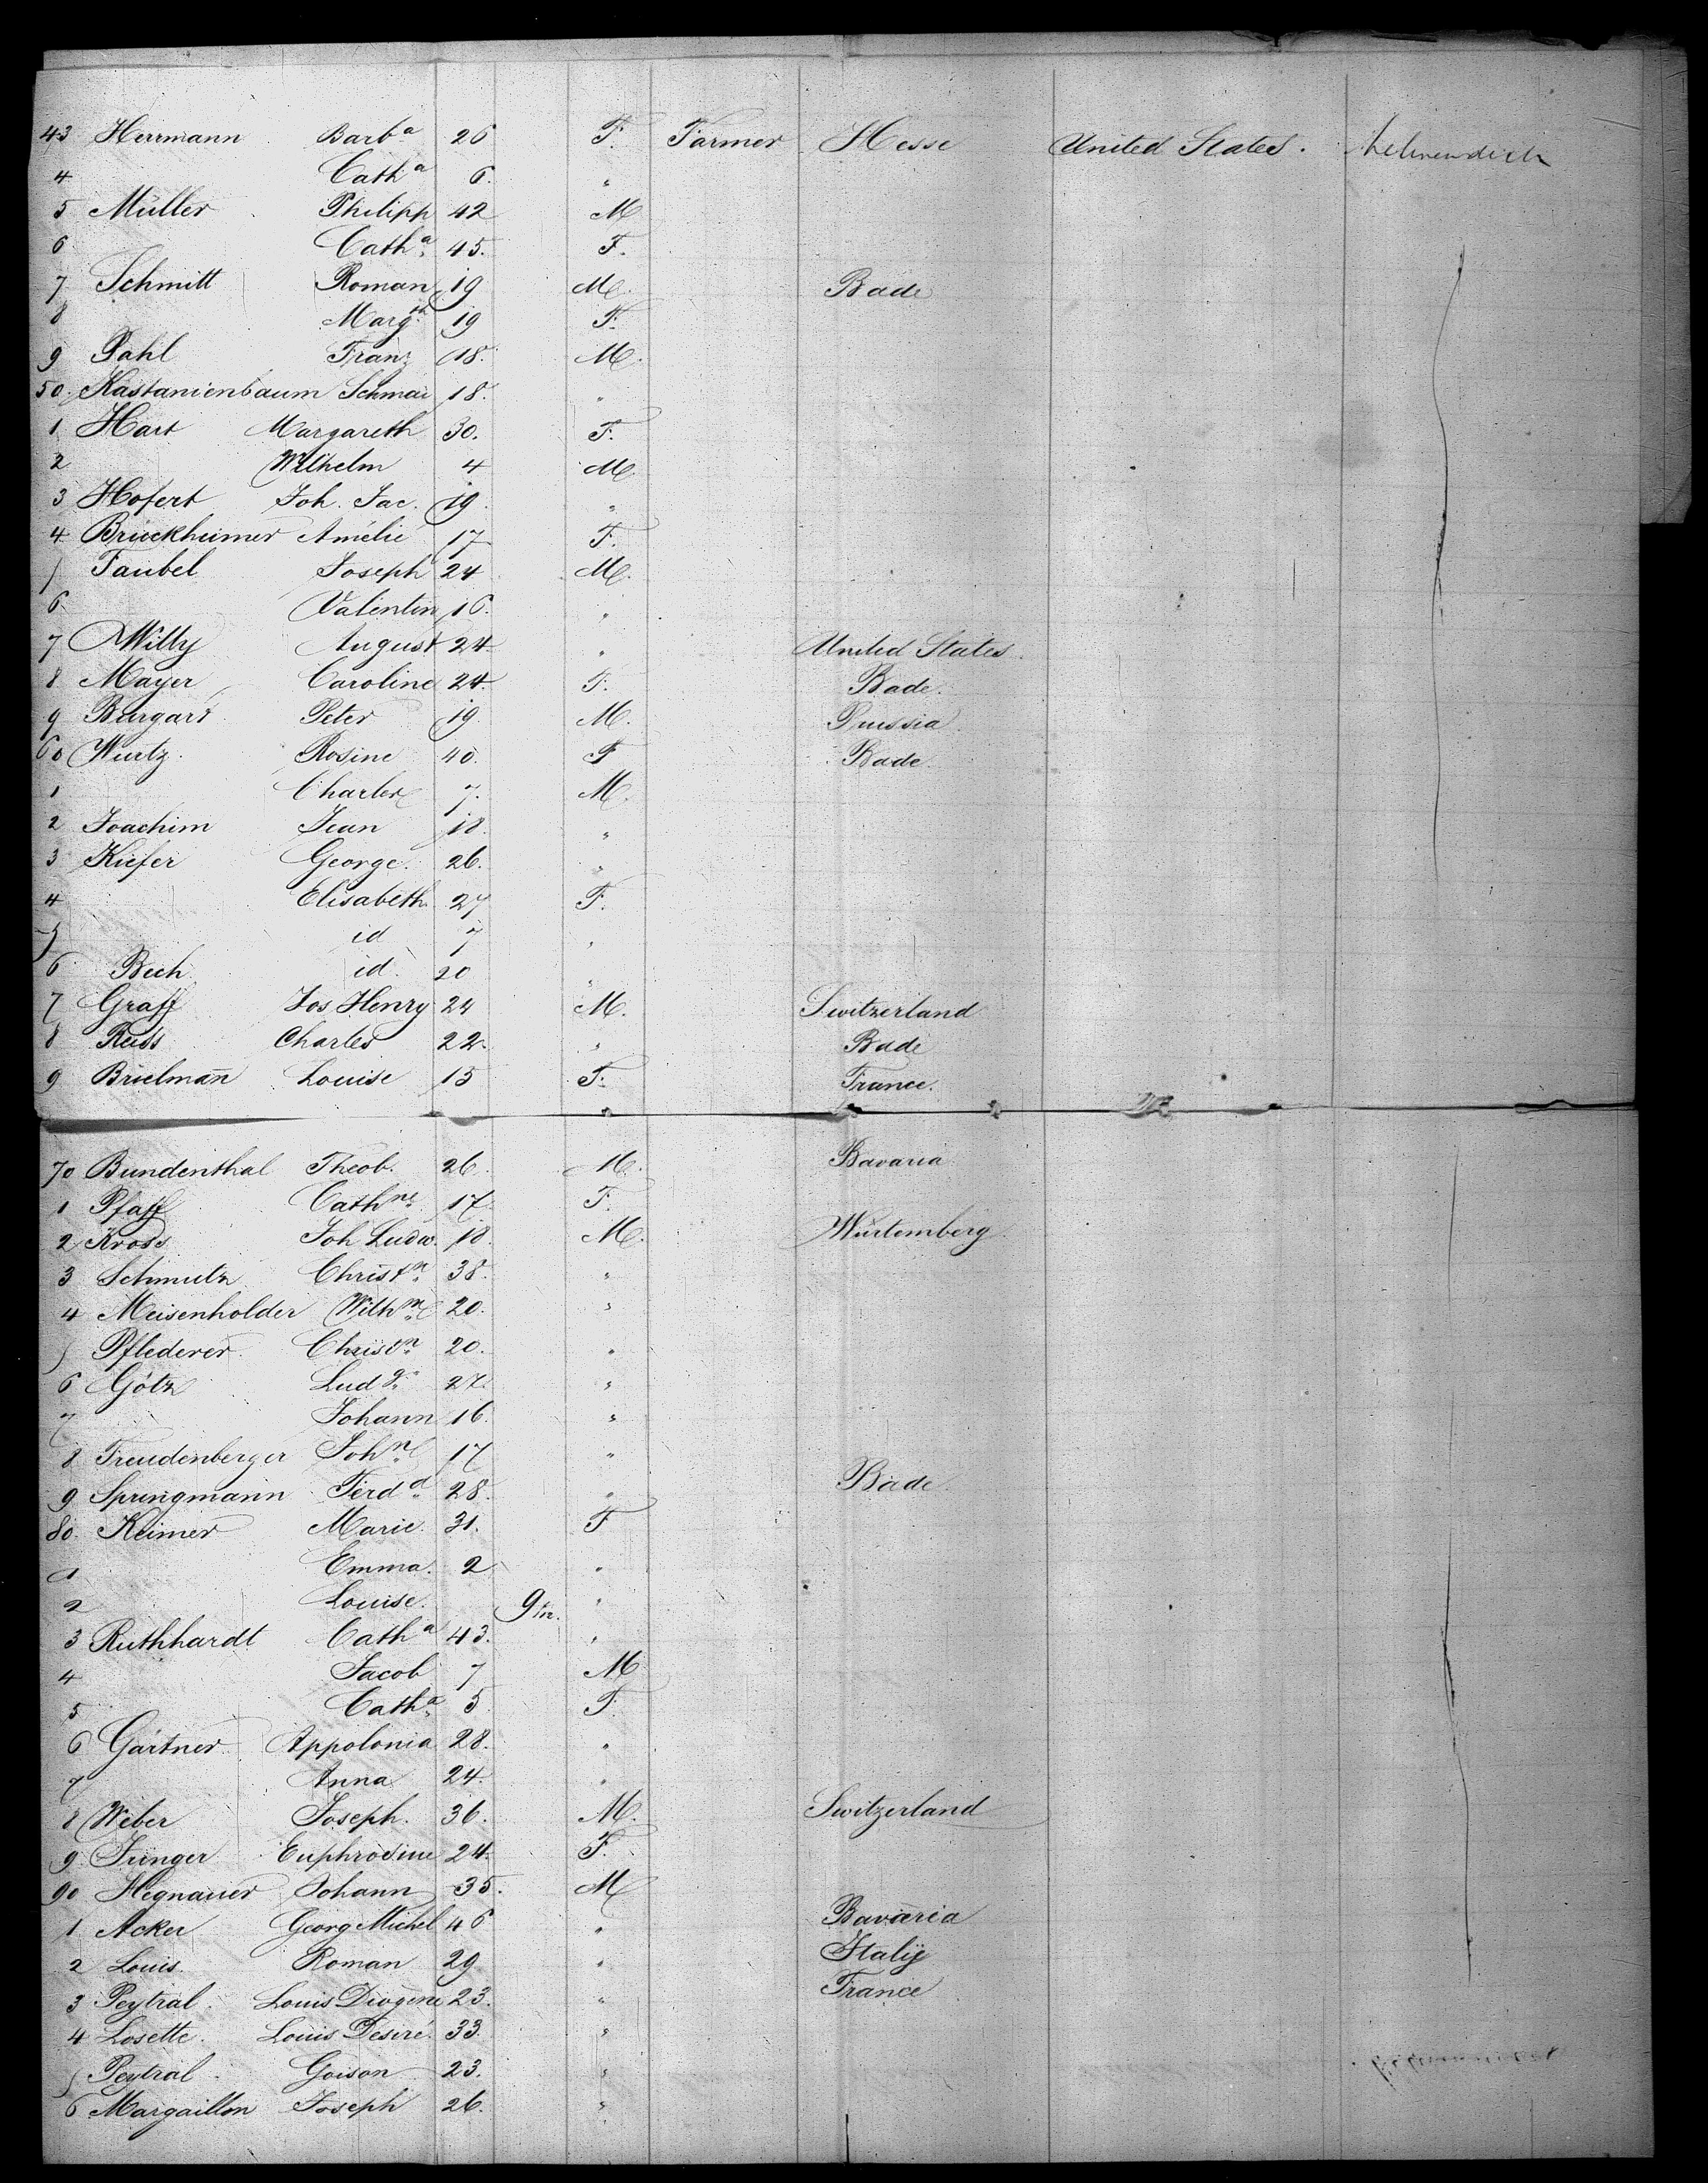 43 Herrmann Barbª 26 F. Farmer Hesse United States.
4 Cathª 6. "
5 Müller Philipp 42 M
6 Cathª 45. F.
7 Schmitt Roman 19 M. Bade
8 Margth 19 F.
9 Pahl Franz 18. M.
50. Kastanienbaum Schmai 18. "
1 Hart Margareth 30. F.
2 Wilhelm 4 M.
3 Hofert Joh. Jac. 19. "
4 Brückheimer Amélie 17 F.
5 Faubel Joseph 24 M.
6 Valentin 16. "
7 Willy August 24 " United States.
8 Mayer Caroline 24. F. Bade.
9 Burgart Peter 19. M. Prussia
60 Wurtz Rosine 40. F Bade.
1 Charles 7. M.
2 Joachim Jean 18. "
3 Kiefer George. 26. "
4 Elisabeth 27 F.
5 id 7 "
6 Bech id. 20 "
7 Graff Jos Henry 24 M. Switzerland
8 Reiss Charles 22. " Bade
9 Brielman̄n Louise 15 F. France.
70 Bundenthal Theob. 26. M. Bavaria
1 Pfaff Cathne 17. F.
2 Kross Joh Ludw. 18. M. Würtemberg
3 Schmutz Christn 38. "
4 Meisenholder Wilhm 20. "
5 Pflederer. Christn 20. "
6 Götz Ludg 27. "
7 Johann 16. "
8 Freudenberger John 17 "
9 Springmann Ferdd 28. " Bade.
80. Keimer Marie. 31. F
1 Emma. 2 "
2 Louise. 9/12. "
3 Ruthhardt Cathª 43. "
4 Jacob 7 M
5 Cathª 5 F
6 Gärtner Appolonia 28. "
7 Anna 24. "
8 Weber Joseph. 36. M. Switzerland
9 Junger Euphrosine 24. F.
90 Hegnauer Johann 35. M
1 Acker Georg Michel 46 " Bavaria
2 Louis. Roman 29 " Italy
3 Peytral. Louis Diogene 23. " France
4 Losette. Louis Desiré. 33. "
5 Peytral. Goison 23. "
6 Margaillon Joseph 26. "